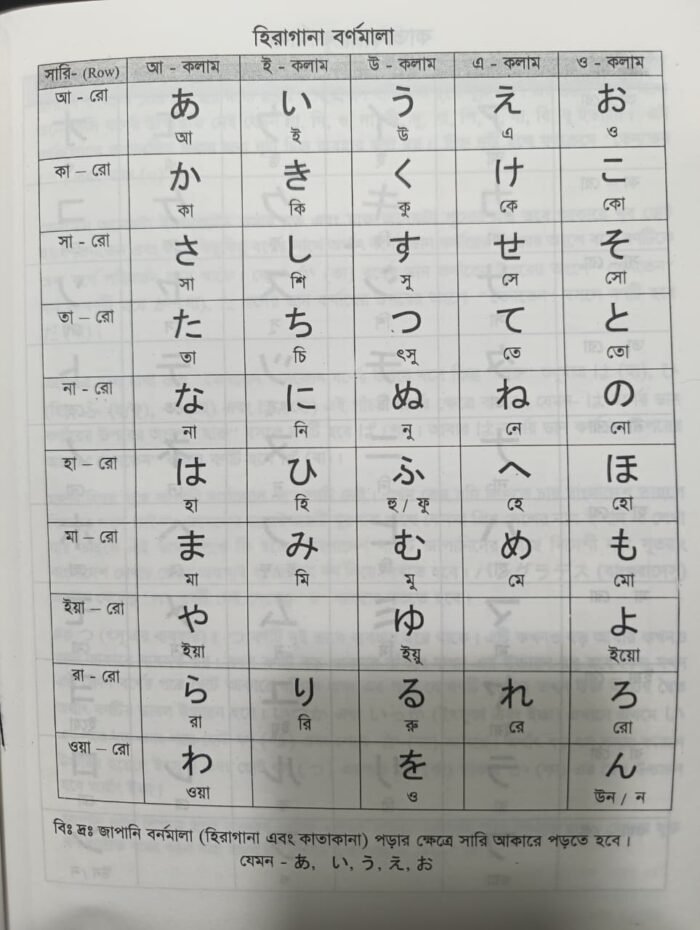 হিরাগানা বর্ণমালা
সারি- (Row) আ - কলাম ই - কলাম উ - কলাম এ - কলাম ও - কলাম
আ - রো あ い う え お
আ ই উ এ ও
কা – রো か き く け こ
কা কি কু কে কো
সা - রো さ し す せ そ
সা শি সূ সে সো
তা – রো た ち つ て と
তা চি ৎসূ তে তো
না - রো な に ぬ ね の
না নি নূ নে নো
হা – রো は ひ ふ へ ほ
হা হি হু / ফূ হে হো
মা – রো ま み む め も
মা মি মূ মে মো
ইয়া – রো や ゆ よ
ইয়া ইয়ূ ইয়ো
রা - রো ら り る れ ろ
রা রি রু রে রো
ওয়া – রো わ を ん
ওয়া ও উন / ন
বিঃ দ্রঃ জাপানি বর্নমালা (হিরাগানা এবং কাতাকানা) পড়ার ক্ষেত্রে সারি আকারে পড়তে হবে।
যেমন - あ, い, う, え, お